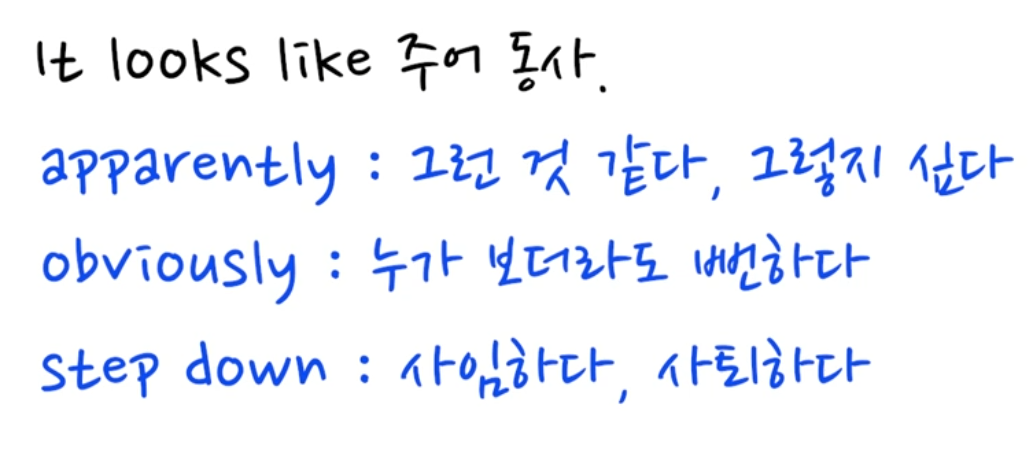 It looks like 주어 동사.
apparently : 그런 것 같다, 그렇지 싶다
obviously : 누가 보더라도 뻔하다
step down : 사임하다, 사퇴하다